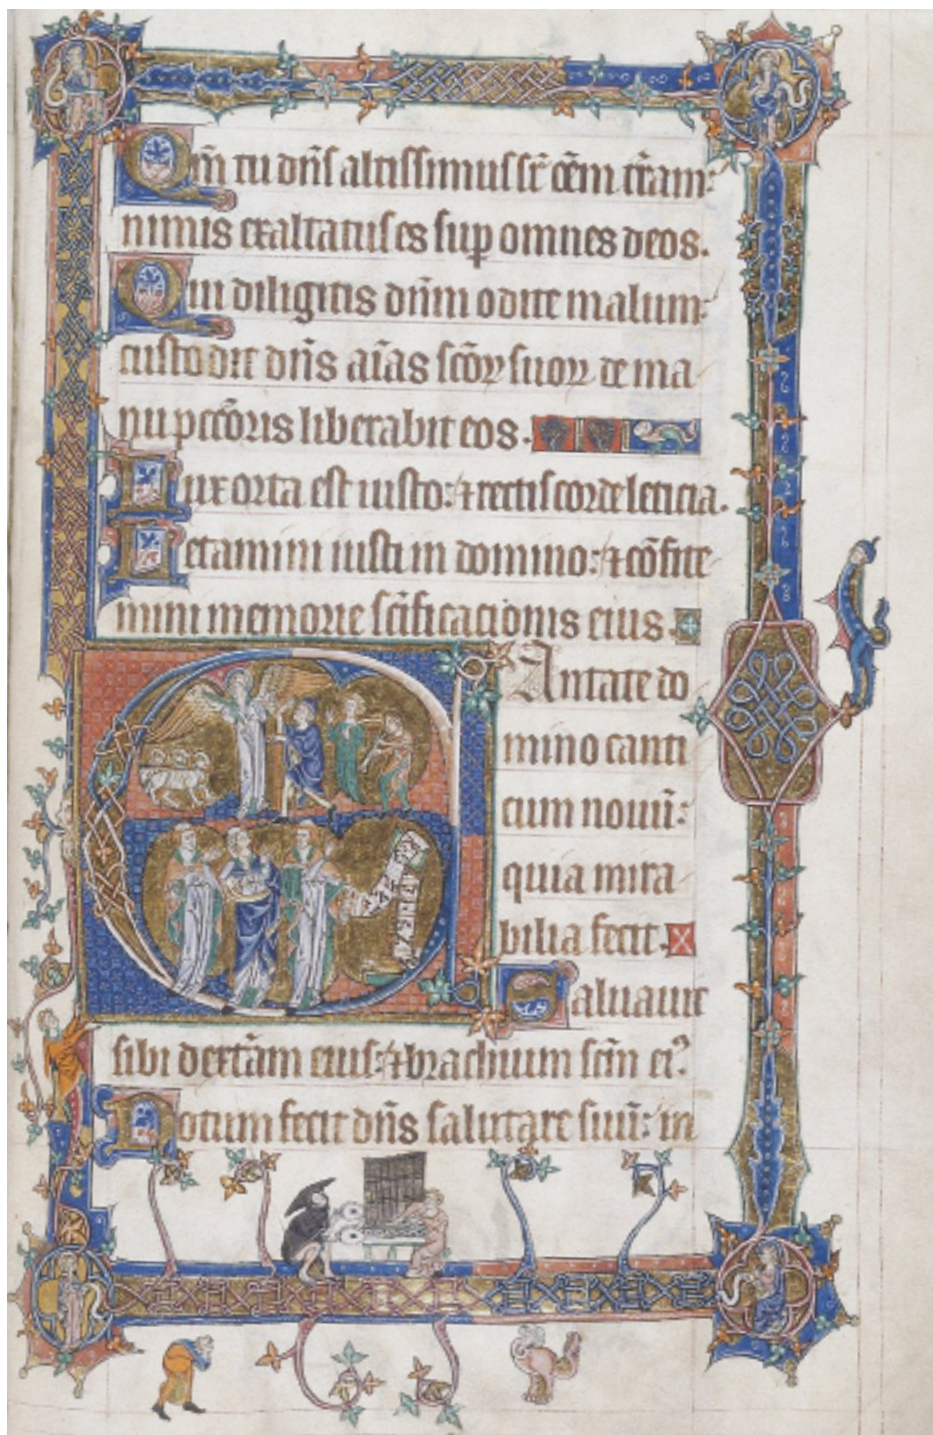 Qm̄ tu dn̄s altissimus sr̄ om̄em t̄ram:
nimis exaltatus es sup omnes deos.
Qui diligitis dn̄m odite malum:
custodit dn̄s aīas sc̄oꝝ suoꝝ de ma
nu pcc̄oris liberabit eos.
Lux orta est iusto: ⁊ rectis corde leticia.
Letamini iusti in domino: ⁊ cōfite
mini memorie sc̄ificacionis eius.
Cantate do
mino canti
cum nouū:
quia mira
bilia fecit.
Saluauit
sibi dext̄am eius: ⁊ brachium sc̄m ei᾽
Notum fecit dn̄s salutare suū: in